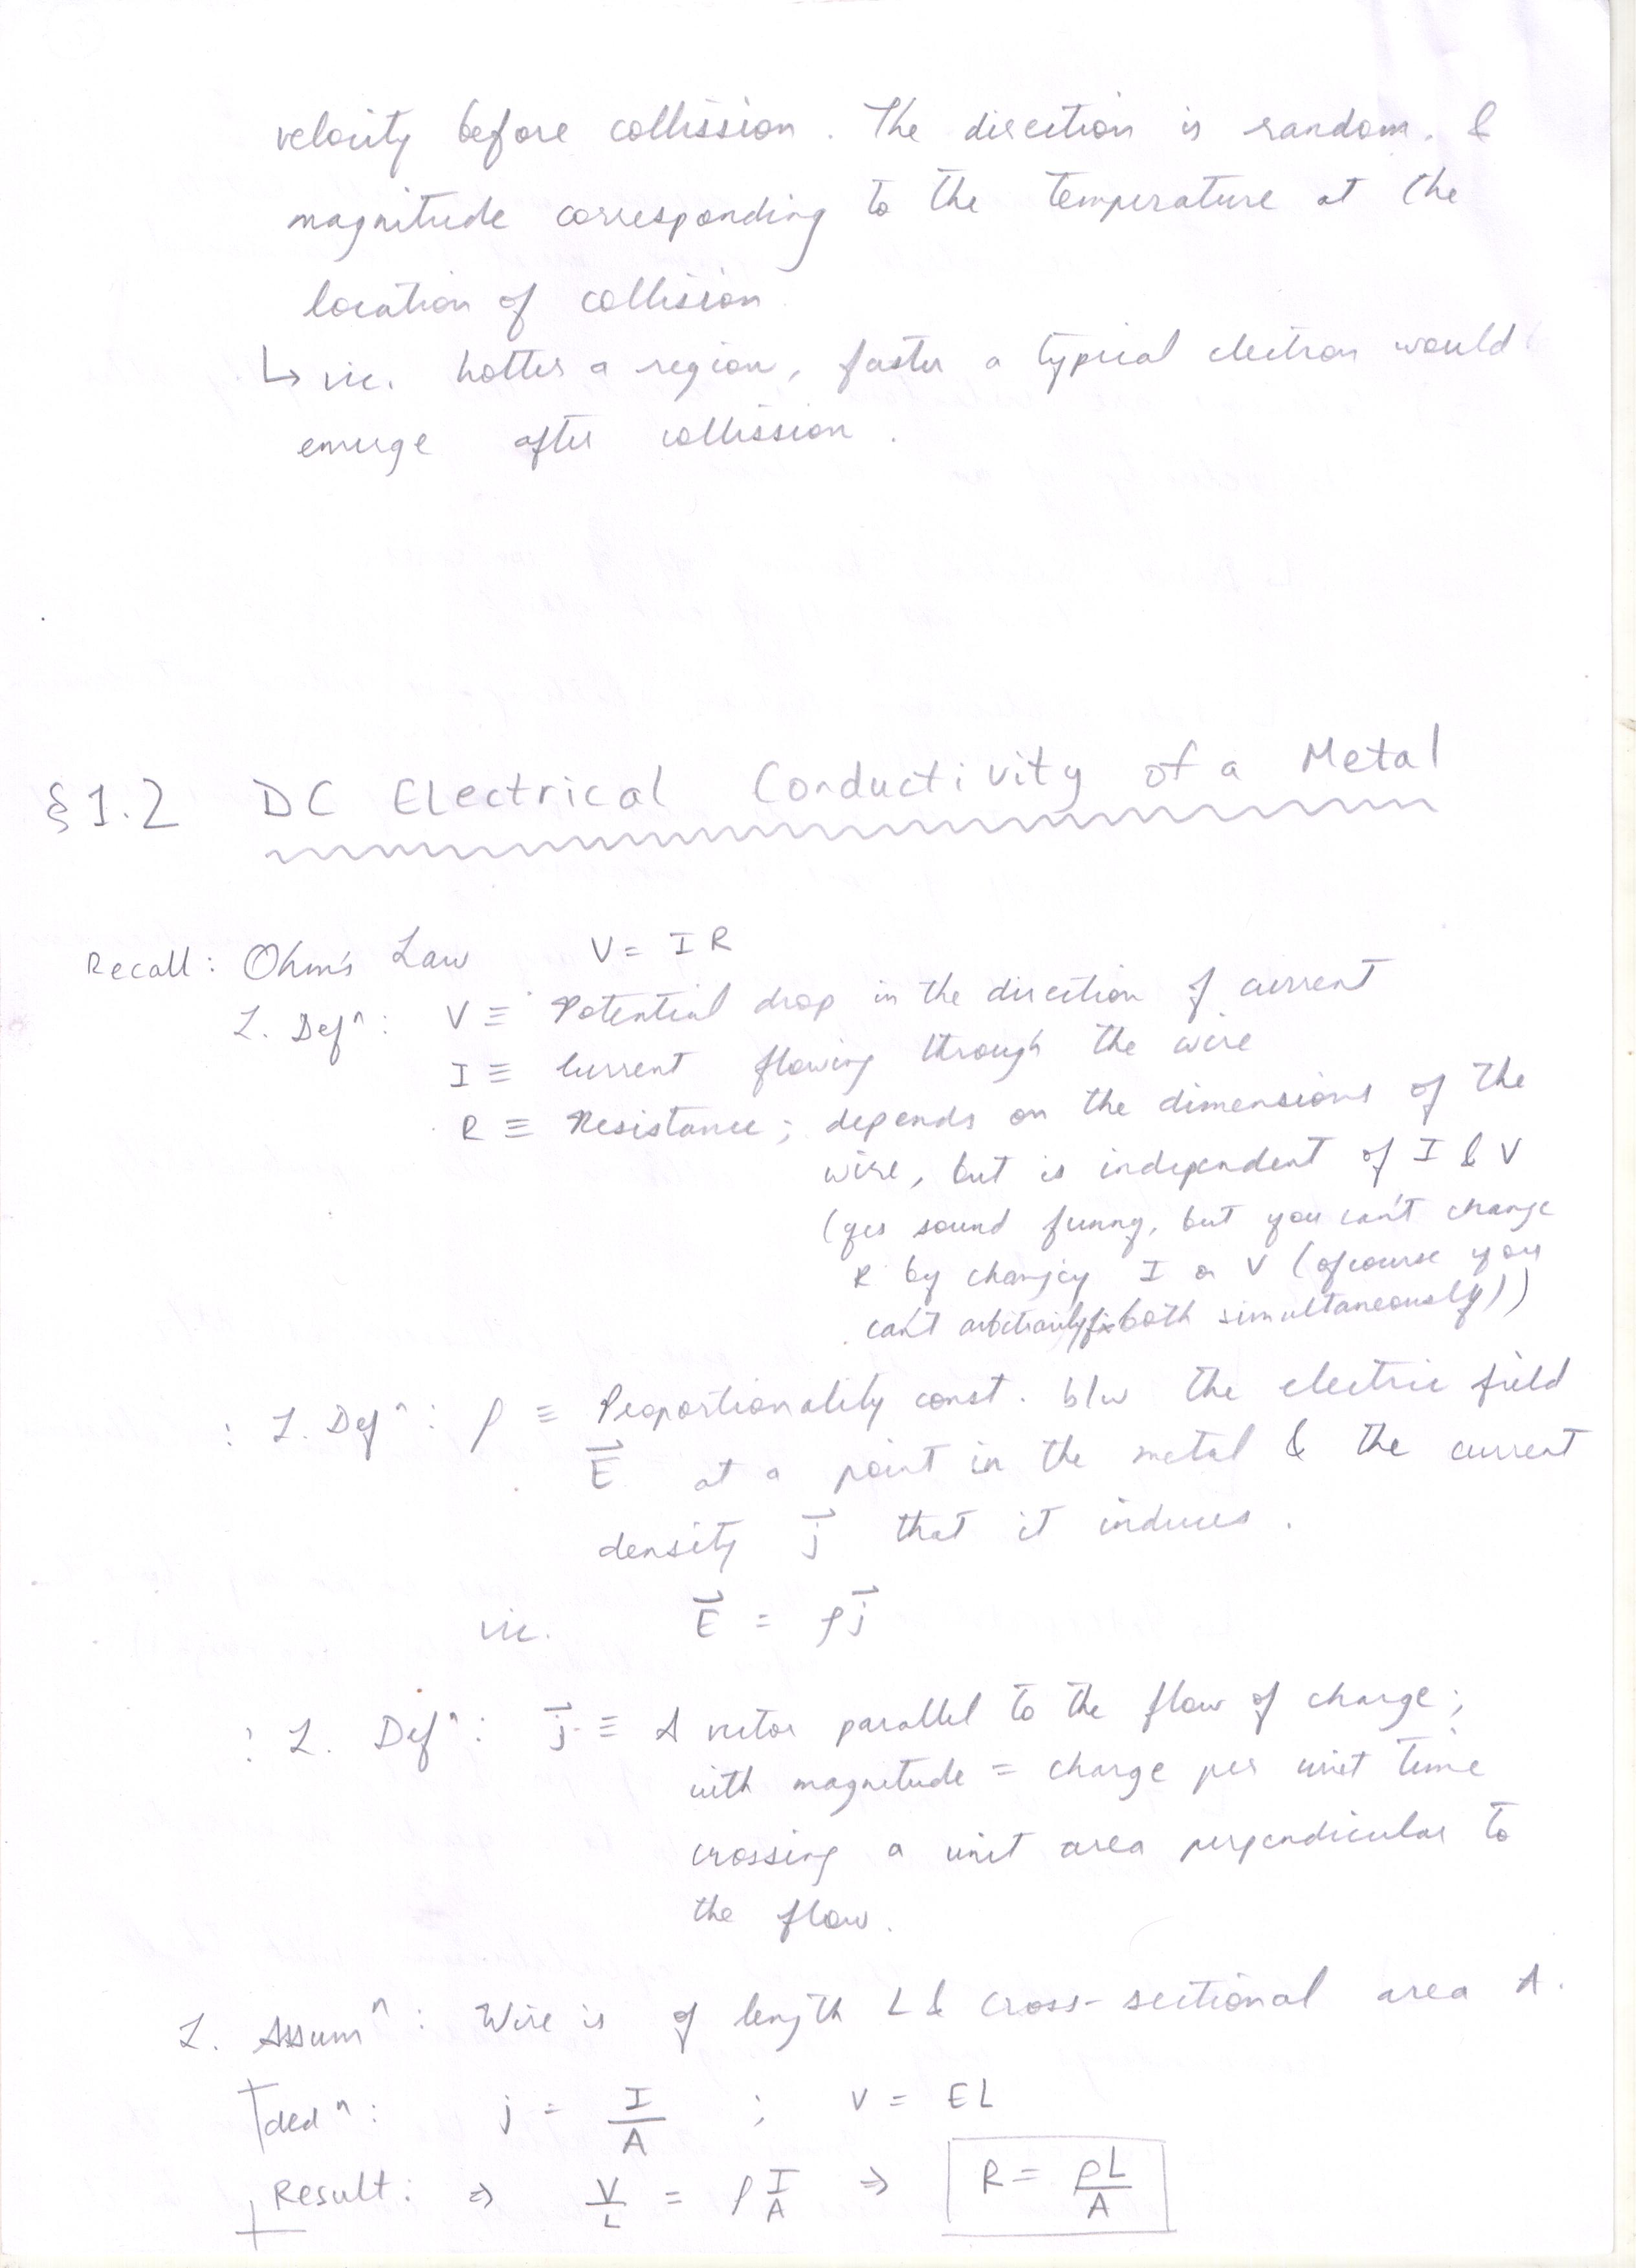 velocity before collission. The direction is random. &
magnitude corresponding to the temperature at the
location of collision
↳ viz. hotter a region, faster a typical electron would
emerge after collission.
§1.2 DC Electrical Conductivity of a Metal
Recall: Ohm's Law V = I R
L. Defⁿ: V ≡ Potential drop in the direction of current
I ≡ Current flowing through the wire
R ≡ Resistance; depends on the dimensions of the
wire, but is independent of I & V
(yes sound funny, but you can't change
R by changing I or V (ofcourse you
can't arbitrarily fix both simultaneously))
: L. Defⁿ: ρ ≡ Proportionality const. b/w the electric field
E⃗ at a point in the metal & the current
density j⃗ that it induces.
viz. E⃗ = ρj⃗
: L. Defⁿ: j⃗ ≡ A vector parallel to the flow of charge;
with magnitude = charge per unit time
crossing a unit area perpendicular to
the flow.
L. Assumⁿ: Wire is of length L & cross-sectional area A.
dedⁿ: j = I/A ; V = EL
Result: ⇒ V/L = ρ I/A ⇒ R = ρL/A